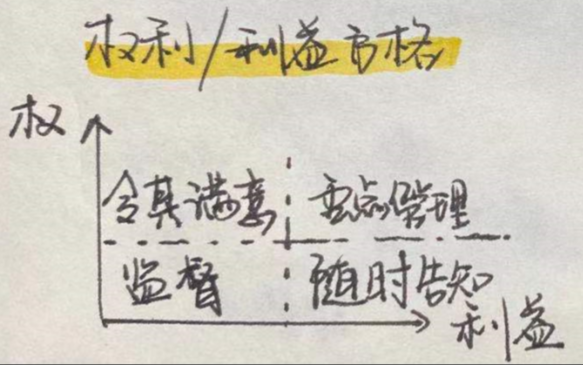 权利/利益方格
权
令其满意 重点管理
监督 随时告知
利益